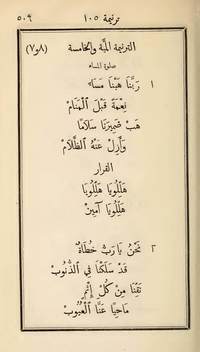 ترنيمة ١٠٥
٥٠٩
الترنيمة المئة والخامسة (٨و٧)
صلوة المساء
١ رَبَّنَا هَبْنَا مَسَاءً
نِعْمَةً قَبْلَ ٱلْمَنَامْ
هَبْ ضَمِيرَنَا سَلَامًا
وَأَزِلْ عَنْهُ ٱلظَّلَامْ
القرار
هَلِّلُويَا هَلِّلُويَا
هَلِّلُويَا آمِينْ
٢ نَحْنُ يَا رَبُّ خُطَاةٌ
قَدْ سَلَكْنَا فِي ٱلذُّنُوبْ
نَقِّنَا مِنْ كُلِّ إِثْمٍ
مَاحِيًا عَنَّا ٱلْعُيُوبْ